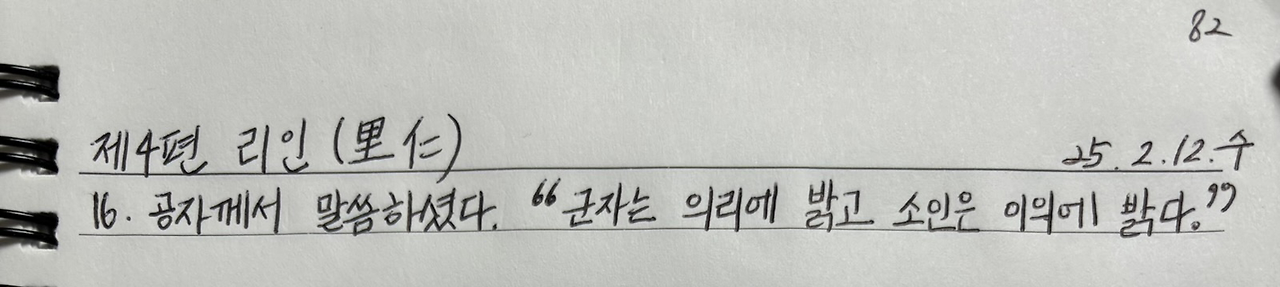 82
제4편 리인(里仁) 25. 2. 12. 수
16. 공자께서 말씀하셨다. “군자는 의리에 밝고 소인은 이익에 밝다.”